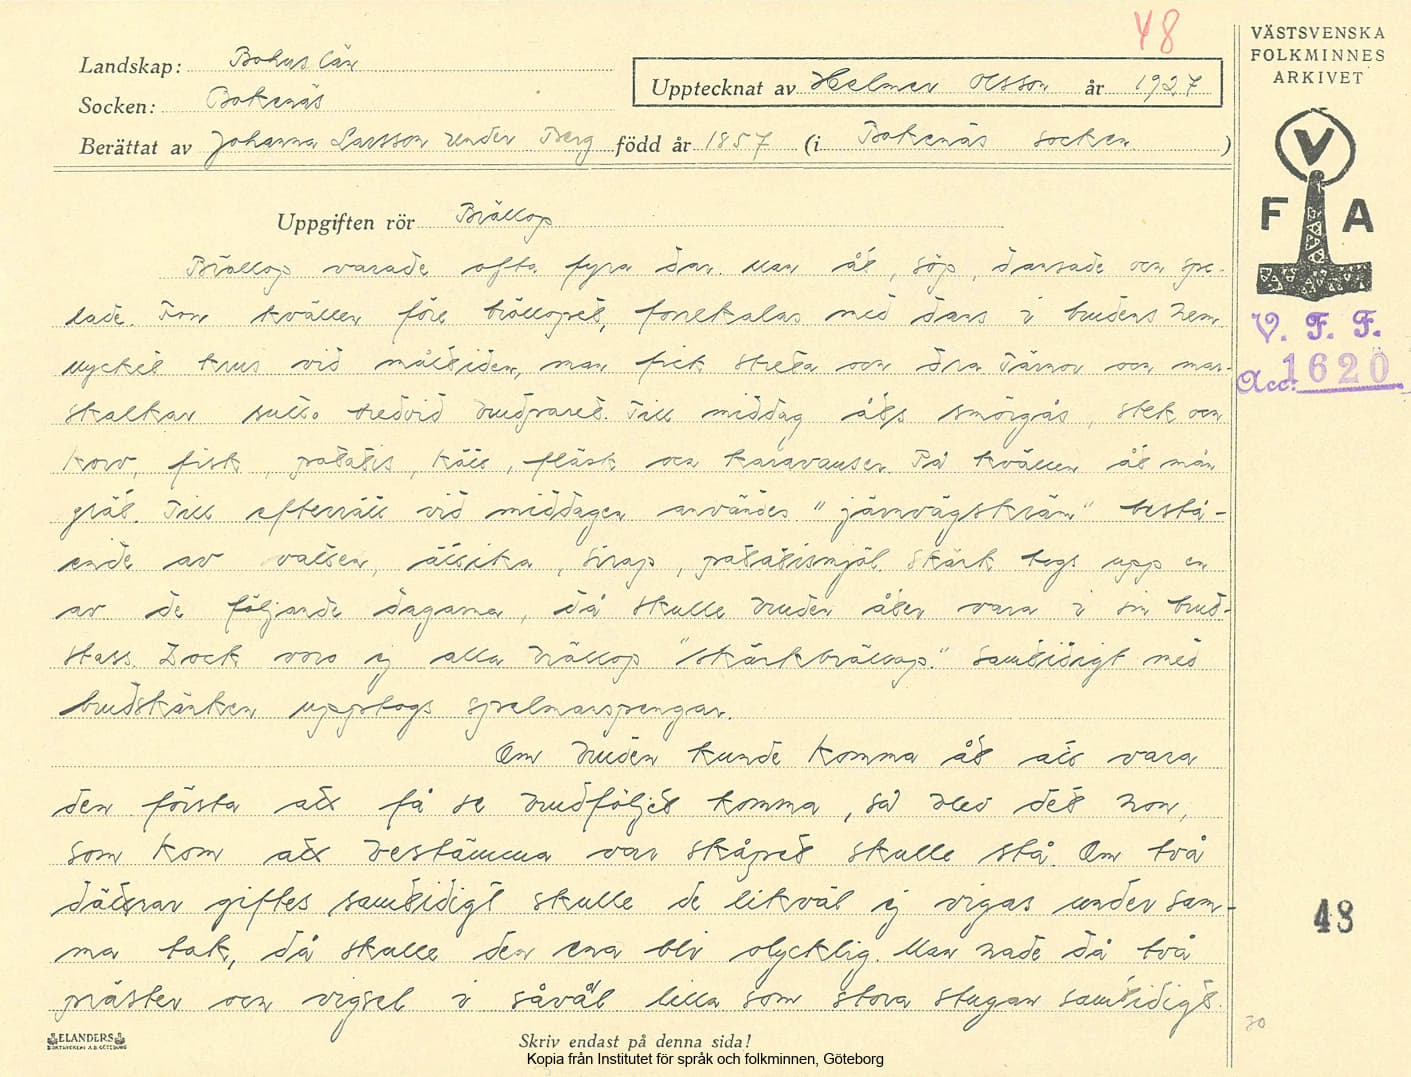 48
VÄSTSVENSKA
FOLKMINNES
ARKIVET
Landskap: Bohuslän
Upptecknat av Helmer Olsson år 1927
Socken: Bokenäs
Berättat av Johanna Larsson under Berg född år 1857 (i Bokenäs socken )
V
F A
V. F. F.
Acc: 1620
Uppgiften rör Bröllop
Bröllop varade ofta fyra dar. Man åt, söp, dansade och spe-
lade. Före kvällen före bröllopet, förekalas med dans i brudens hem.
Mycket krus vid måltiden, man fick streta och dra. Tärnor och mar-
skalkar sutto bredvid brudparet. Till middag åts smörgås, stek och
korv, fisk, potatis, kött, fläsk och karavanser. På kvällen åt man
gröt. Till efterrätt vid middagen användes "järnvägskräm" bestå-
ende av vatten, ättika, sirap, potatismjöl. Skänk togs upp en
av de följande dagarna, då skulle bruden åter vara i sin brud-
stass. Dock voro ej alla bröllop "skänkbröllop." Samtidigt med
brudskänken upptogs spelmanspengar.
Om bruden kunde komma åt att vara
den första att få se brudföljet komma, så blev det hon,
som kom att bestämma var skåpet skulle stå. Om två
döttrar giftes samtidigt skulle de likväl ej vigas under sam-
ma tak, då skulle den ena bli olycklig. Man hade då två
präster och vigsel i såväl lilla som stora stugan samtidigt.
48
30
ELANDERS
BOKTRYCKERI A.B. GÖTEBORG
Skriv endast på denna sida!
Kopia från Institutet för språk och folkminnen, Göteborg